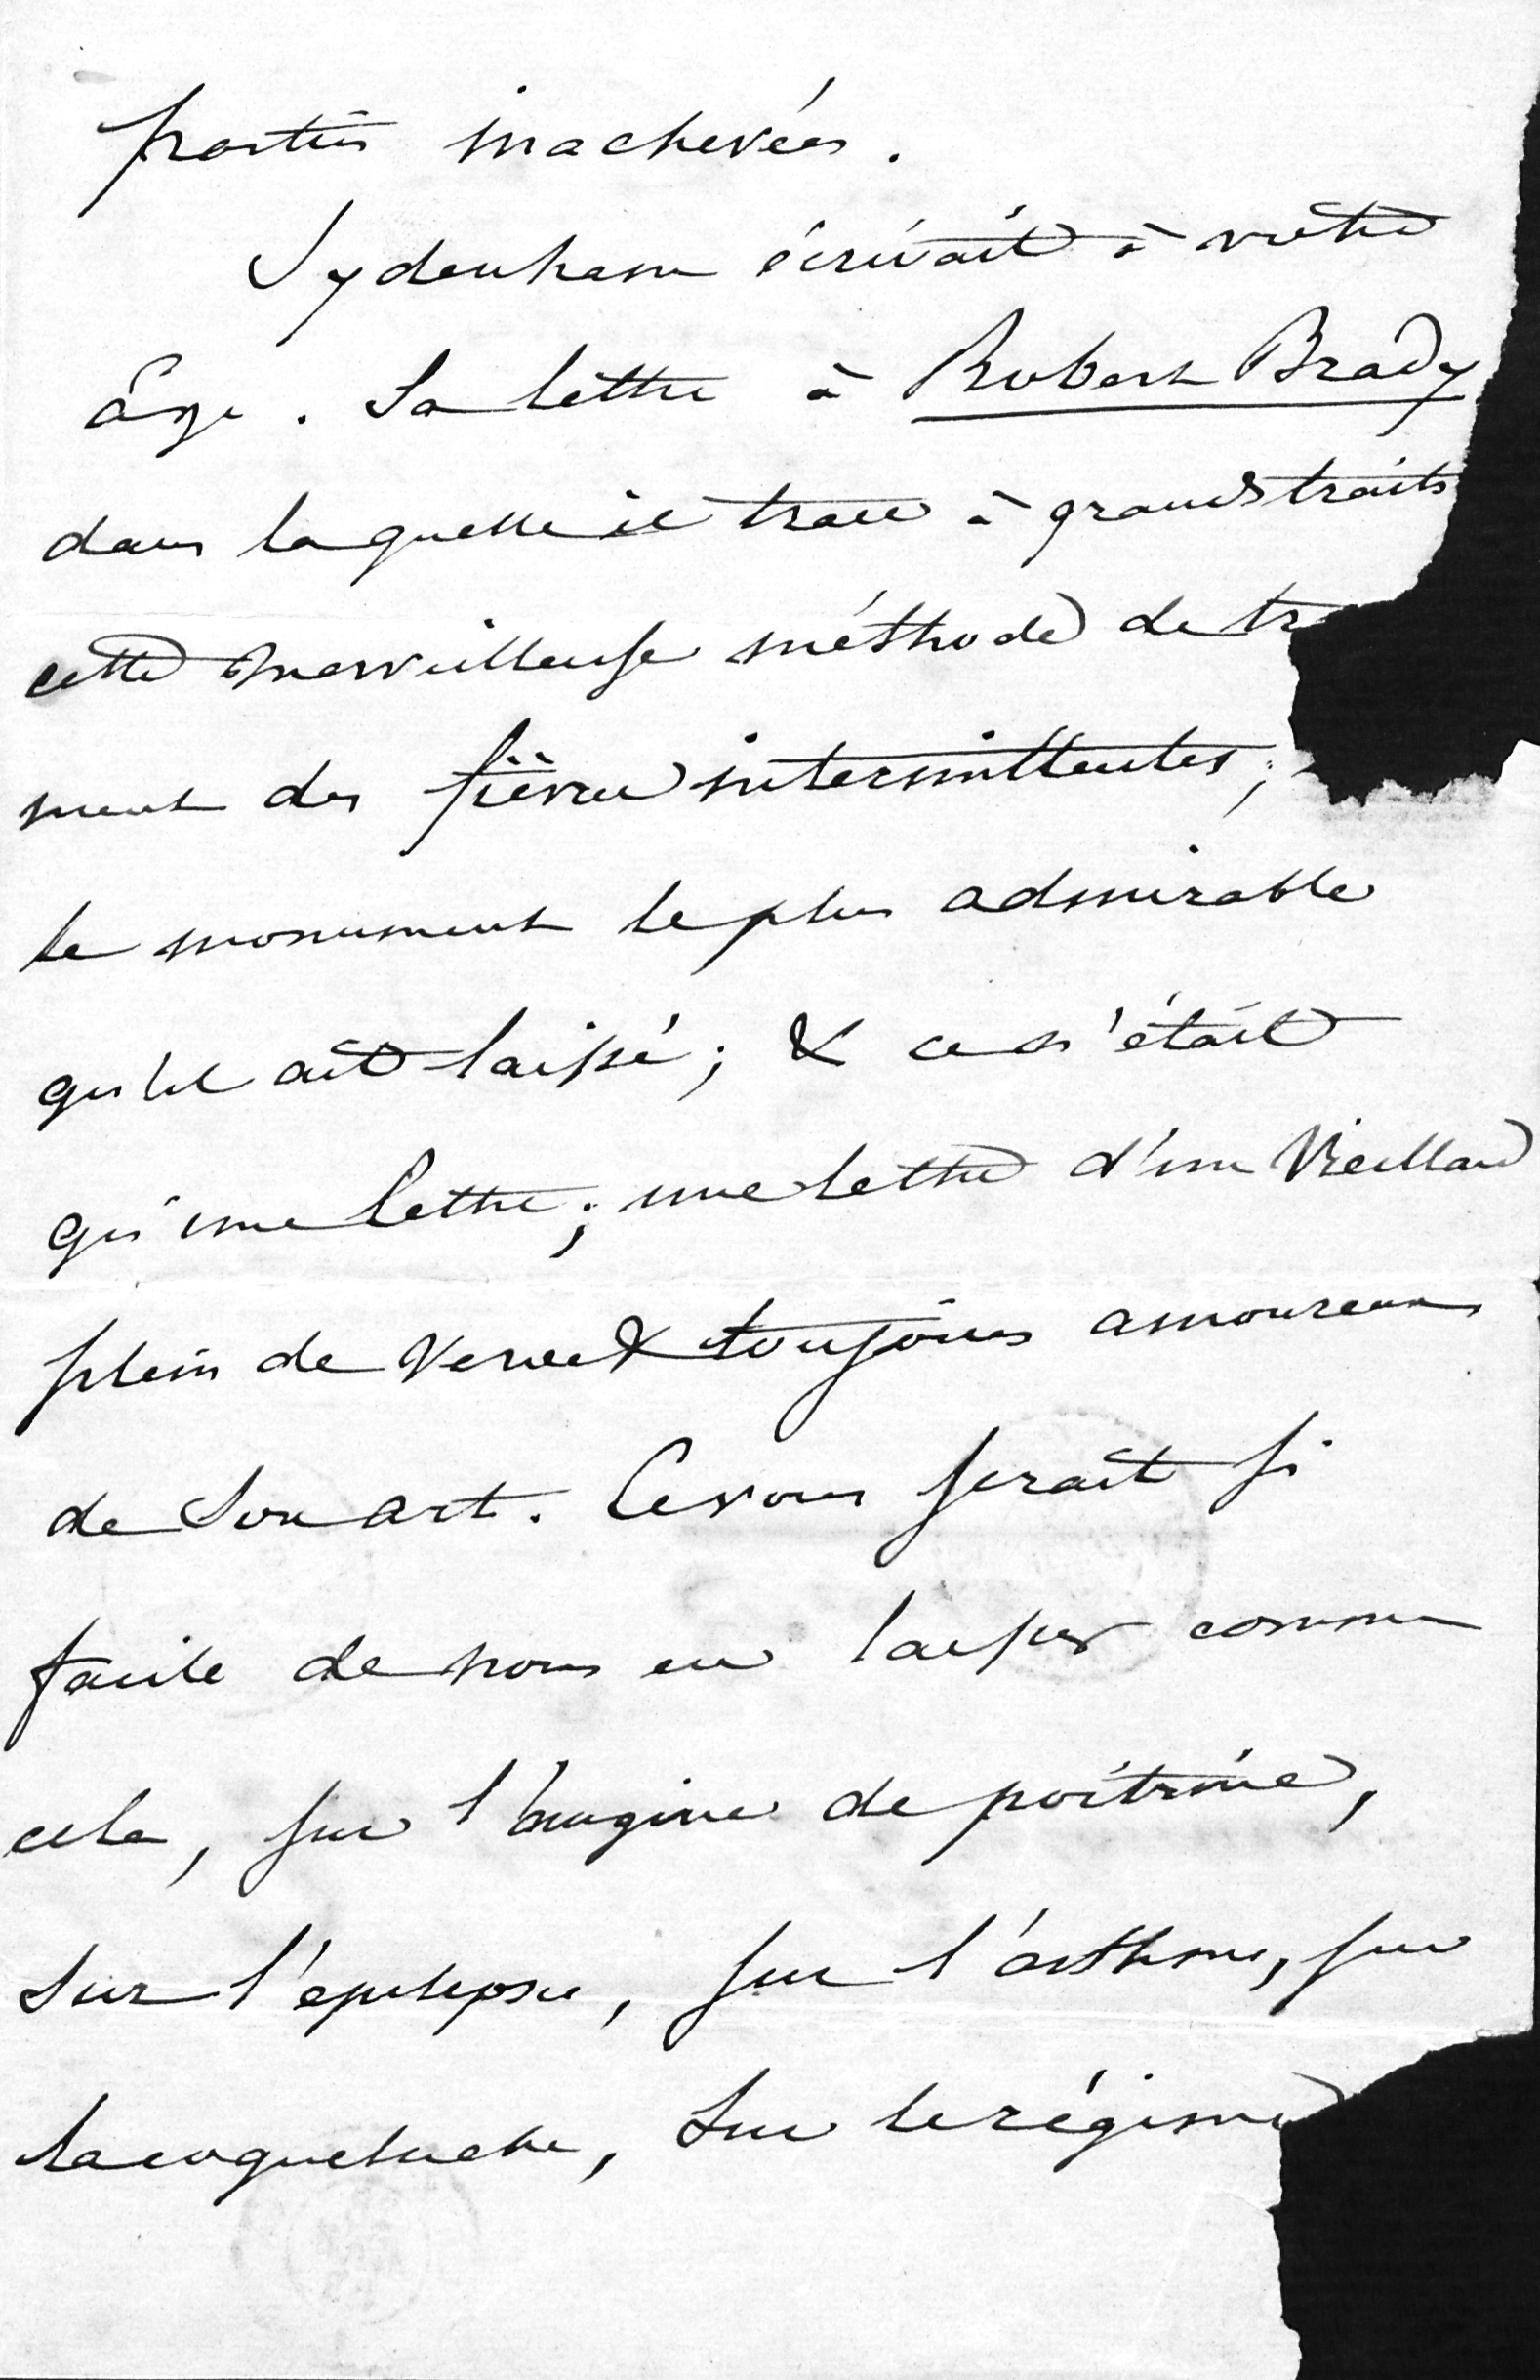 parties inachevées.
Sydenham écrivait à votre
âge. Sa lettre à Robert Brady
dans laquelle il trace à grands traits
cette merveilleuse méthode de tr
ment des fièvres intermittentes,
le monument le plus admirable
qu'il ait laissé; & ce n'était
qu'une lettre; une lettre d'un Vieillard
plein de verve & toujours amoureux
de son art. Ce vous serait si
facile de nous en laisser comme
cela, sur l'angine de poitrine,
sur l'épilepsie, sur l'asthme, sur
la coqueluche, sur le régime